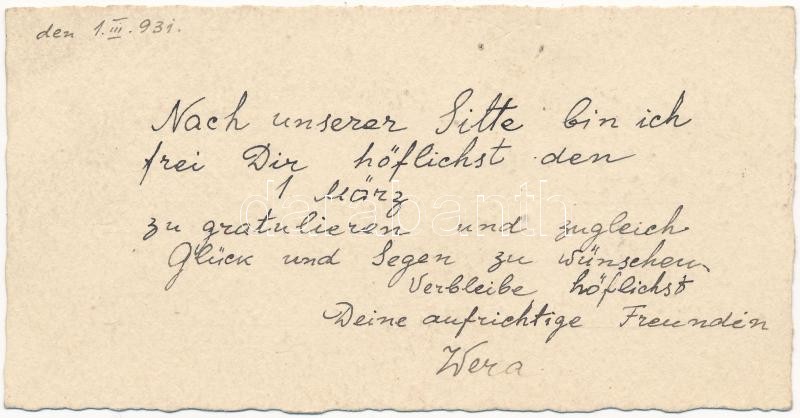 den 1.III.931.
Nach unserer Sitte bin ich
frei Dir höflichst den
1 März
zu gratulieren und zugleich
Glück und Segen zu wünschen
Verbleibe höflichst
Deine aufrichtige Freundin
Wera
darabanth